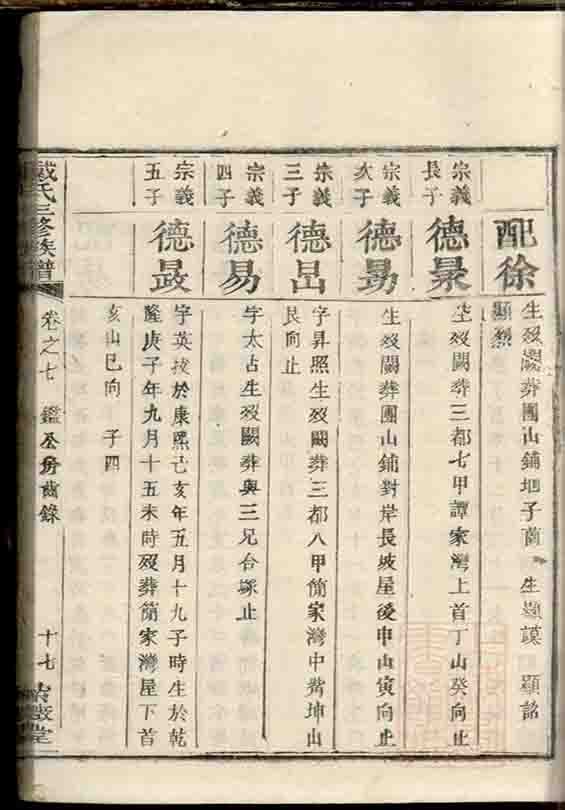 配徐
生殁闕葬團山鋪地子蘭 生顯謨 顯銘
顯烈
宗義
長子
德景
生殁闕葬三都七甲譚家灣上首丁山癸向止
宗義
次子
德勗
生殁闕葬團山鋪對岸長坡屋後申山寅向止
宗義
三子
德昌
字昇照生殁闕葬三都八甲簡家灣中嘴坤山
艮向止
宗義
四子
德易
字太占生殁闕葬與三兄合塚止
宗義
五子
德晸
字英拔於康熙己亥年五月十九子時生於乾
隆庚子年九月十五未時殁葬簡家灣屋下首
亥山巳向 子四
戴氏三修族譜
卷之七 鑑公房齒錄
十七